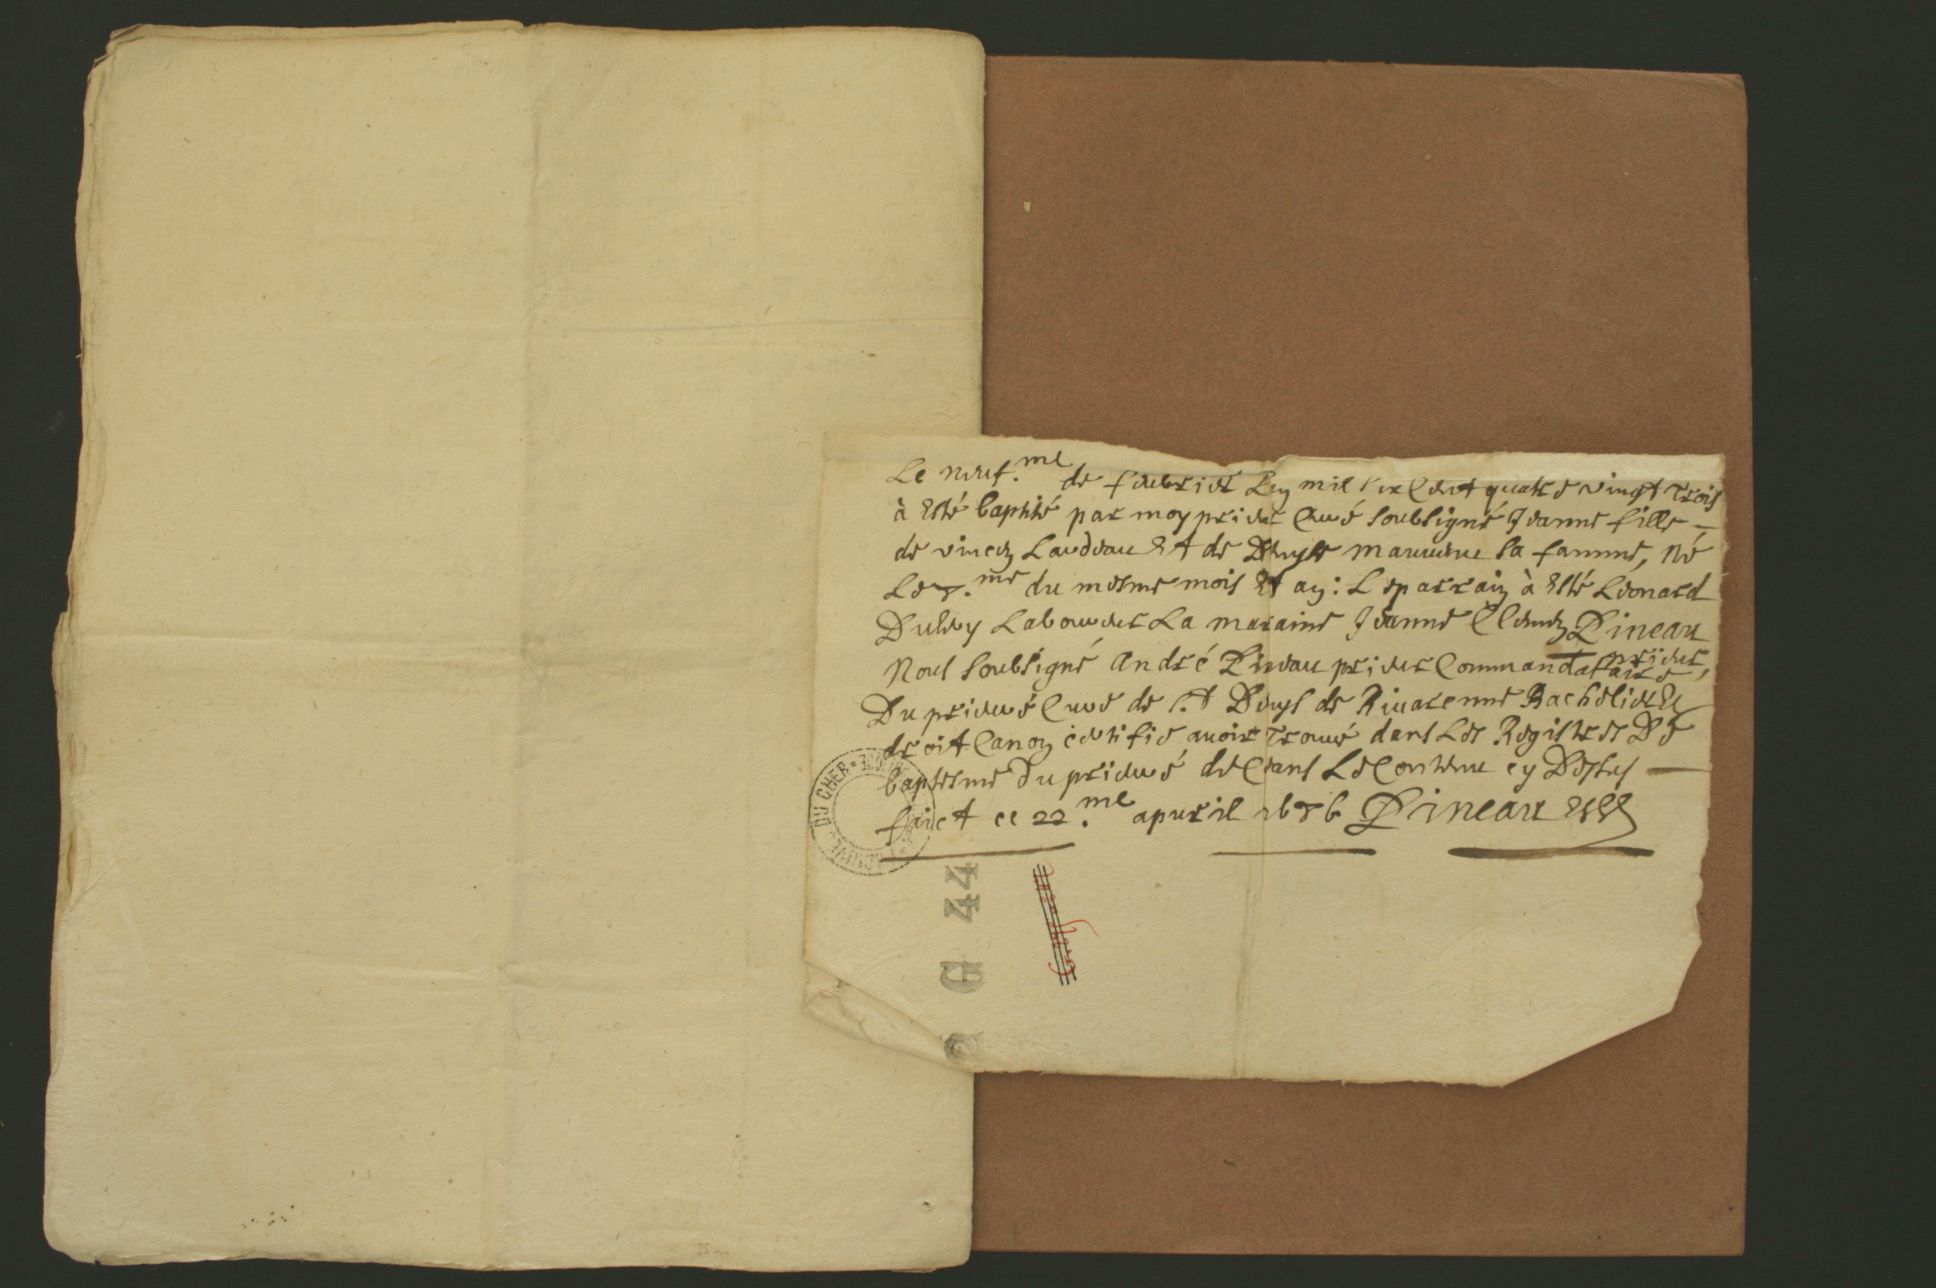 Le neuf.me de feubrier Lan mil six Cent quatre vingt trois
à Esté baptisé par moy prieur Curé soubsigné Jeanne fille
de vincen Laudeau Et de Denyse sa famme, Né
Le 8.me du mesme mois Et an : Le parrain à Esté Leonard
Laboureur La maraine Jeanne Pineau
prieur,
Nous soubsigné André Pineau prieur Commandataire
Du prieuré Curé de s.t Denys de Riuarenne Bachelier En
droit Canon certifie auoir trouué dans Les Registres De
baptesme du prieuré de Ceans Le Contenu cy Dessus
faict ce 22.me apuril 1686 Pineau
DU CHER
G 44